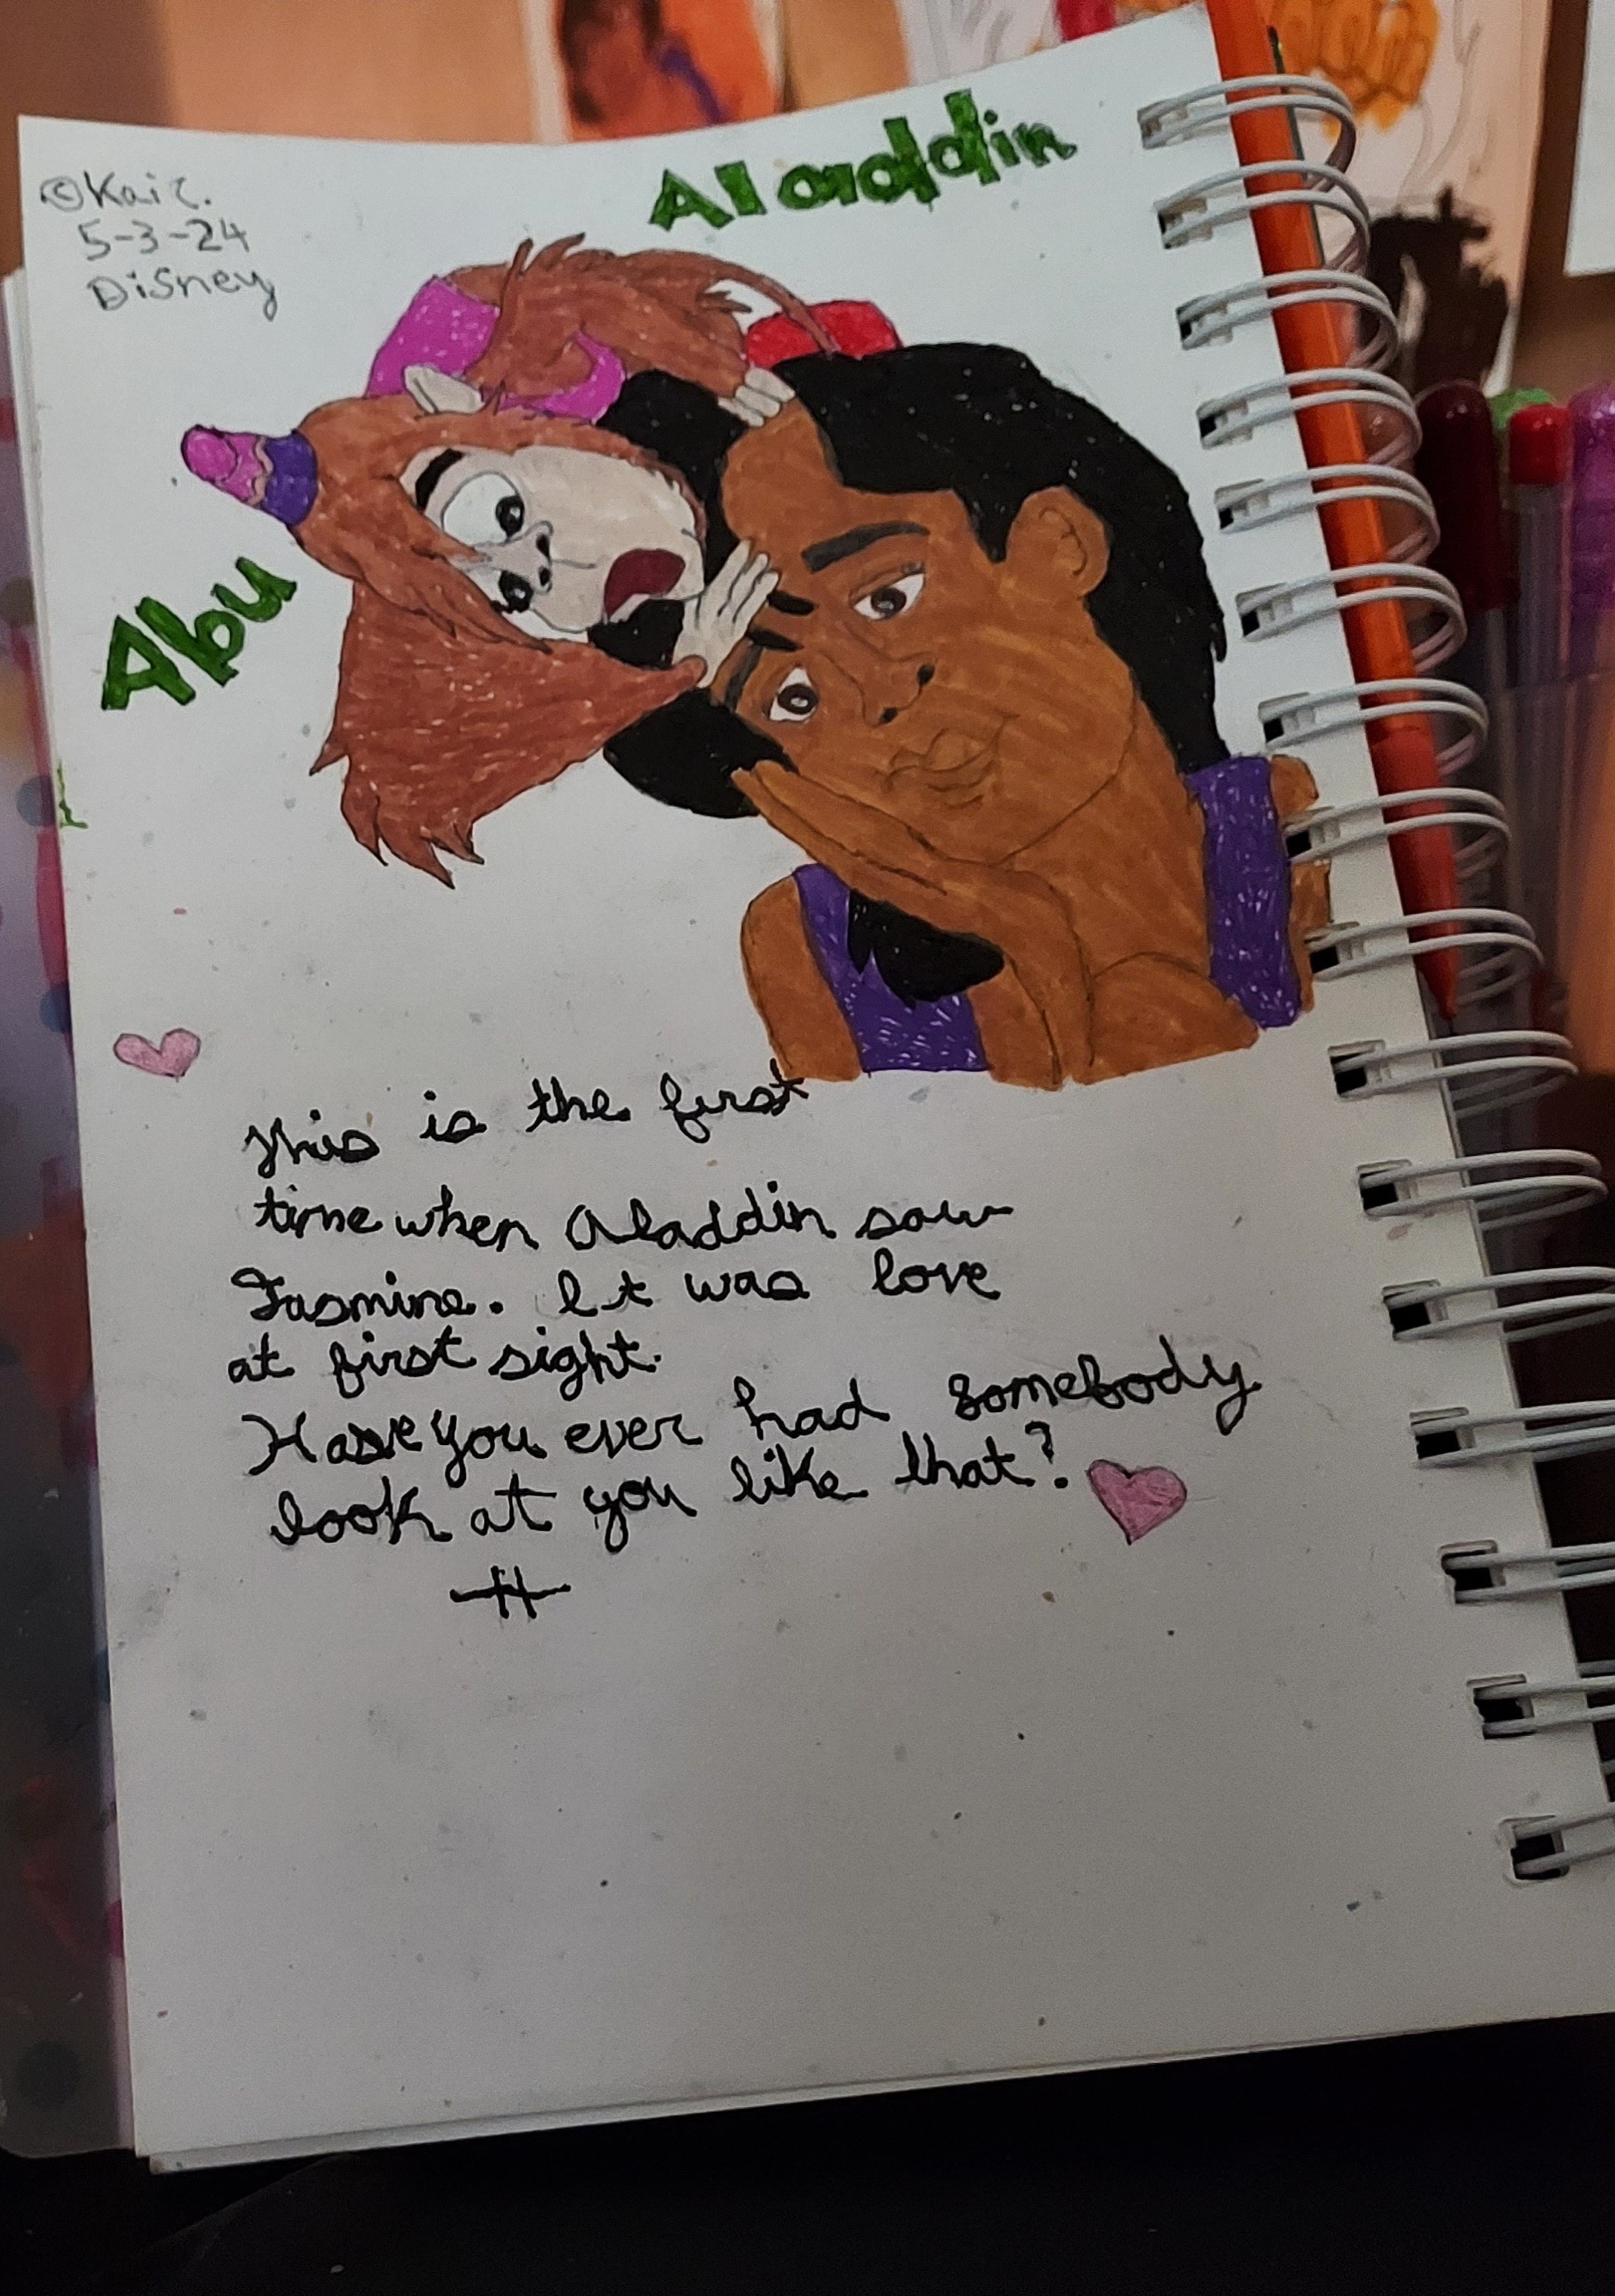 ©Kai C.
5-3-24
Disney
Aladdin
Abu
This is the first
time when Aladdin saw
Jasmine. It was love
at first sight.
Have you ever had somebody
look at you like that?